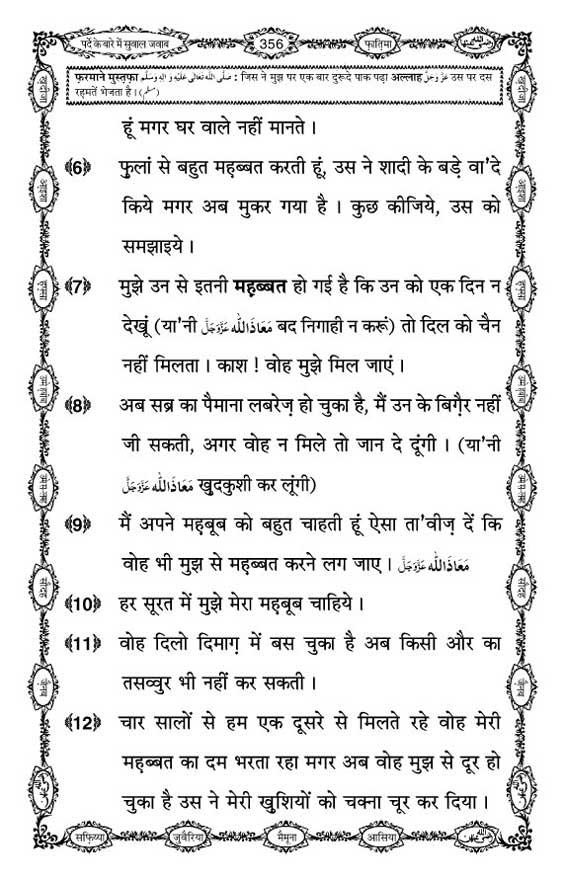 पर्दे के बारे में सुवाल जवाब
356
फ़ातिमा
फ़रमाने मुस्तफ़ा صَلَّى اللهُ تَعَالٰى عَلَيْهِ وَاٰلِهٖ وَسَلَّم : जिस ने मुझ पर एक बार दुरूदे पाक पढ़ा अल्लाह عَزَّوَجَلَّ उस पर दस
रहमतें भेजता है । (مسلم)
हूं मगर घर वाले नहीं मानते ।
《6》 फुलां से बहुत महब्बत करती हूं, उस ने शादी के बड़े वा'दे
किये मगर अब मुकर गया है । कुछ कीजिये, उस को
समझाइये ।
《7》 मुझे उन से इतनी महब्बत हो गई है कि उन को एक दिन न
देखूं (या'नी مَعَاذَاللّٰه عَزَّوَجَلَّ बद निगाही न करूं) तो दिल को चैन
नहीं मिलता । काश ! वोह मुझे मिल जाएं ।
《8》 अब सब्र का पैमाना लबरेज़ हो चुका है, मैं उन के बिग़ैर नहीं
जी सकती, अगर वोह न मिले तो जान दे दूंगी । (या'नी
مَعَاذَاللّٰه عَزَّوَجَلَّ खुदकुशी कर लूंगी)
《9》 मैं अपने महबूब को बहुत चाहती हूं ऐसा ता'वीज़ दें कि
वोह भी मुझ से महब्बत करने लग जाए । مَعَاذَاللّٰه عَزَّوَجَلَّ
《10》 हर सूरत में मुझे मेरा महबूब चाहिये ।
《11》 वोह दिलो दिमाग़ में बस चुका है अब किसी और का
तसव्वुर भी नहीं कर सकती ।
《12》 चार सालों से हम एक दूसरे से मिलते रहे वोह मेरी
महब्बत का दम भरता रहा मगर अब वोह मुझ से दूर हो
चुका है उस ने मेरी खुशियों को चक्ना चूर कर दिया ।
सफ़िय्या
जुवैरिया
मैमूना
आसिया